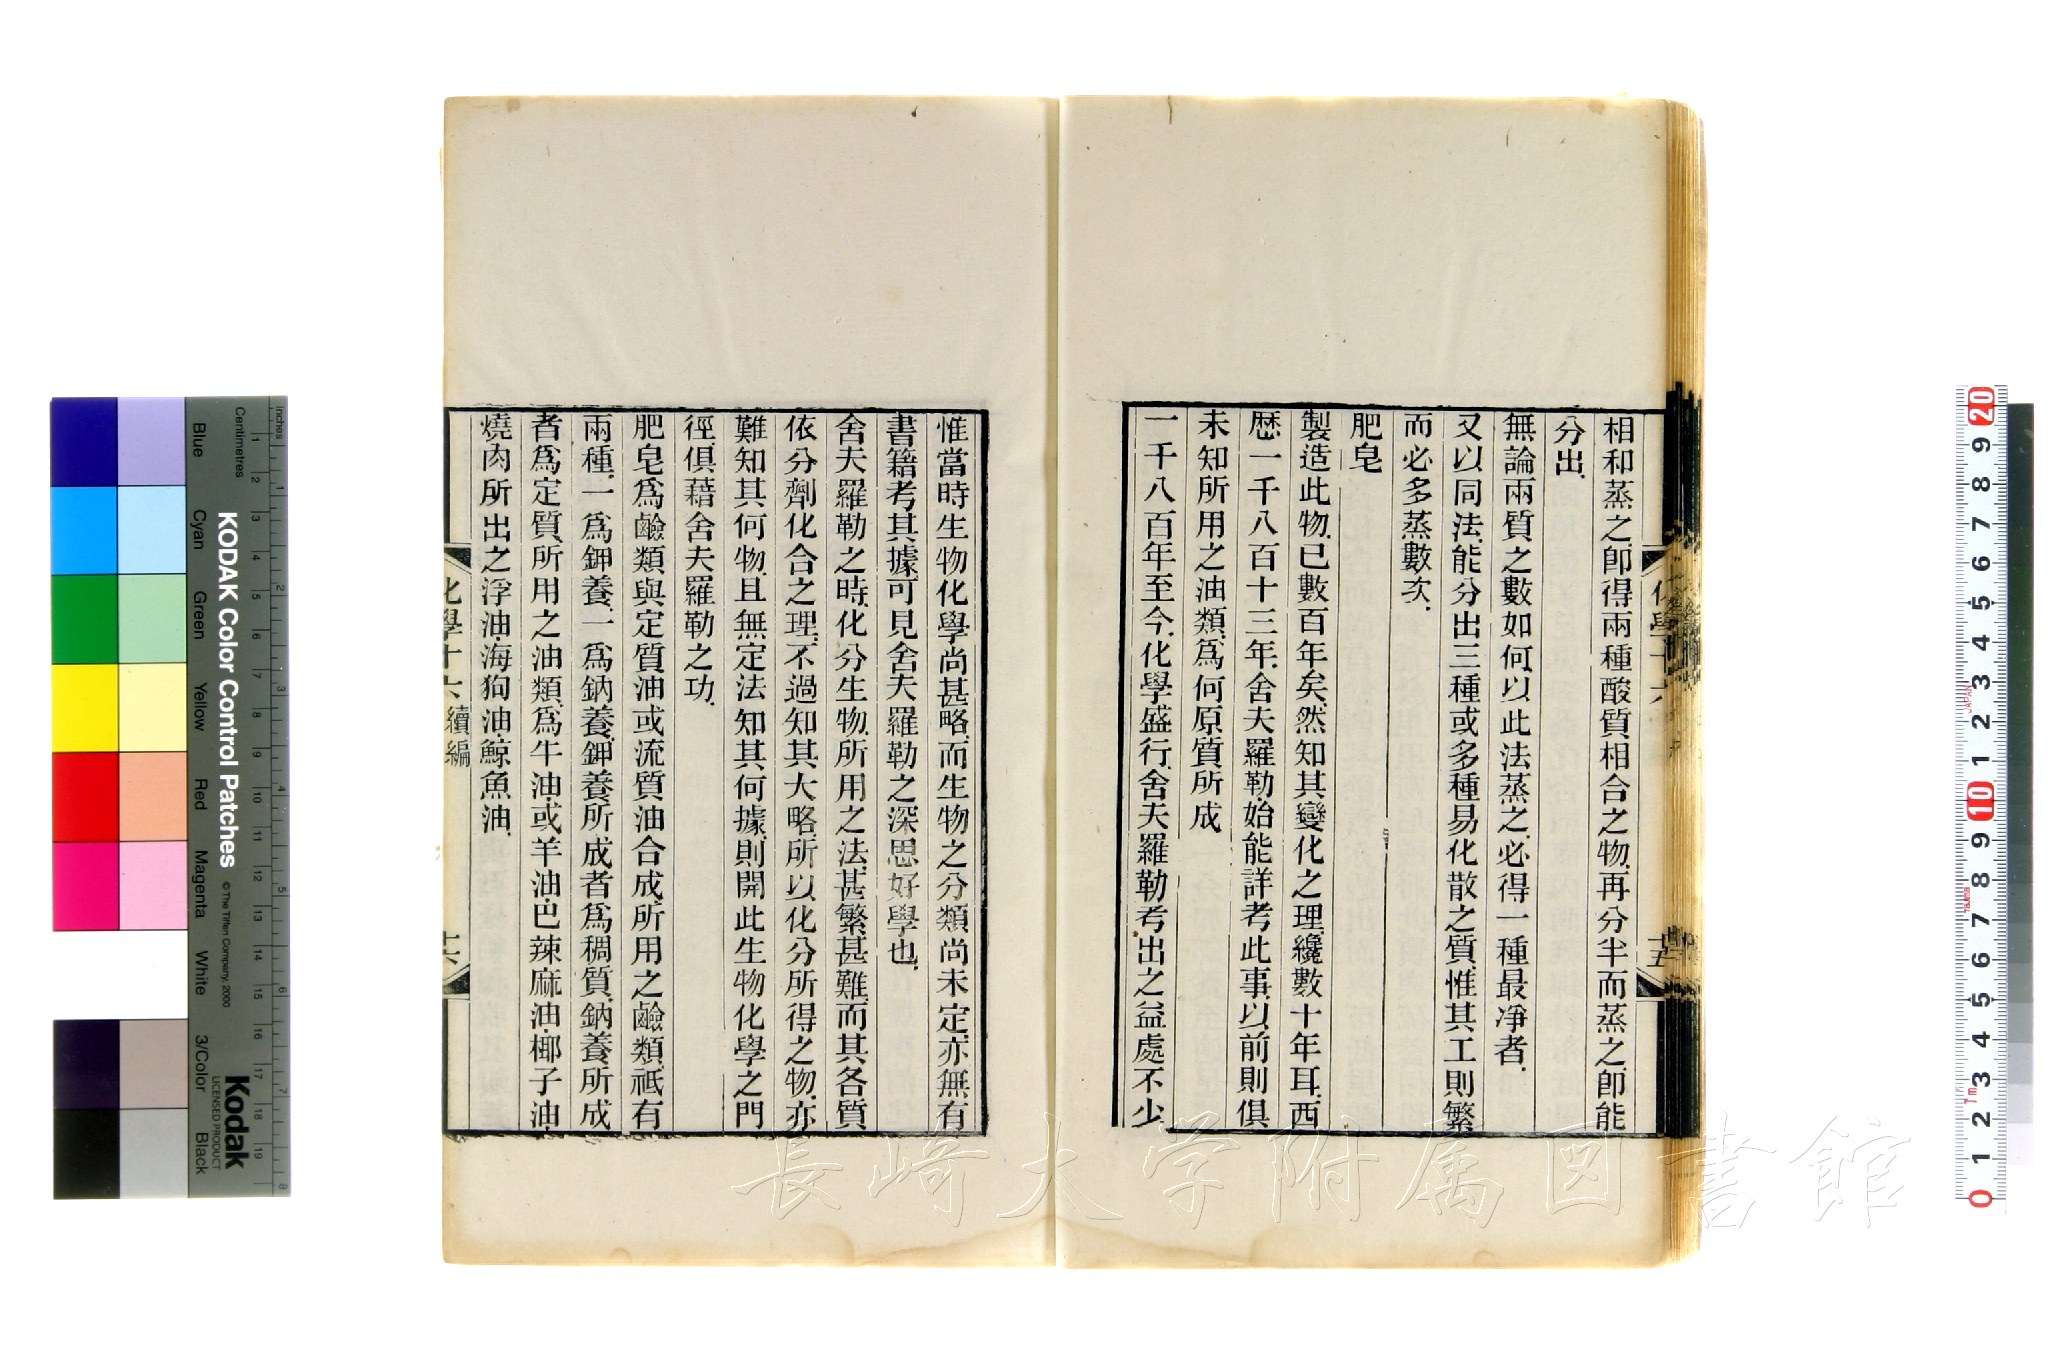 相和蒸之卽得兩種酸質相合之物再分半而蒸之卽能
分出
無論兩質之數如何以此法蒸之必得一種最淨者
又以同法能分出三種或多種易化散之質惟其工則繁
而必多蒸數次
肥皂
製造此物已數百年矣然知其變化之理纔數十年耳西
歷一千八百十三年舍夫羅勒始能詳考此事以前則俱
未知所用之油類爲何原質所成
一千八百年至今化學盛行舍夫羅勒考出之益處不少
惟當時生物化學尚甚略而生物之分類尚未定亦無有
書籍考其據可見舍夫羅勒之深思好學也
舍夫羅勒之時化分生物所用之法甚繁甚難而其各質
依分劑化合之理不過知其大略所以化分所得之物亦
難知其何物且無定法知其何據則開此生物化學之門
徑俱藉舍夫羅勒之功
肥皂爲鹼類與定質油或流質油合成所用之鹼類祇有
兩種一爲鉀養一爲鈉養鉀養所成者爲稠質鈉養所成
者爲定質所用之油類爲牛油或羊油巴辣麻油椰子油
燒肉所出之浮油海狗油鯨魚油
化學十六 續編 十六
長崎大学附属図書館
KODAK Color Control Patches
© The Tiffen Company, 2000
Kodak
LICENSED PRODUCT
Inches
Centimetres
Blue
Cyan
Green
Yellow
Red
Magenta
White
3/Color
Black